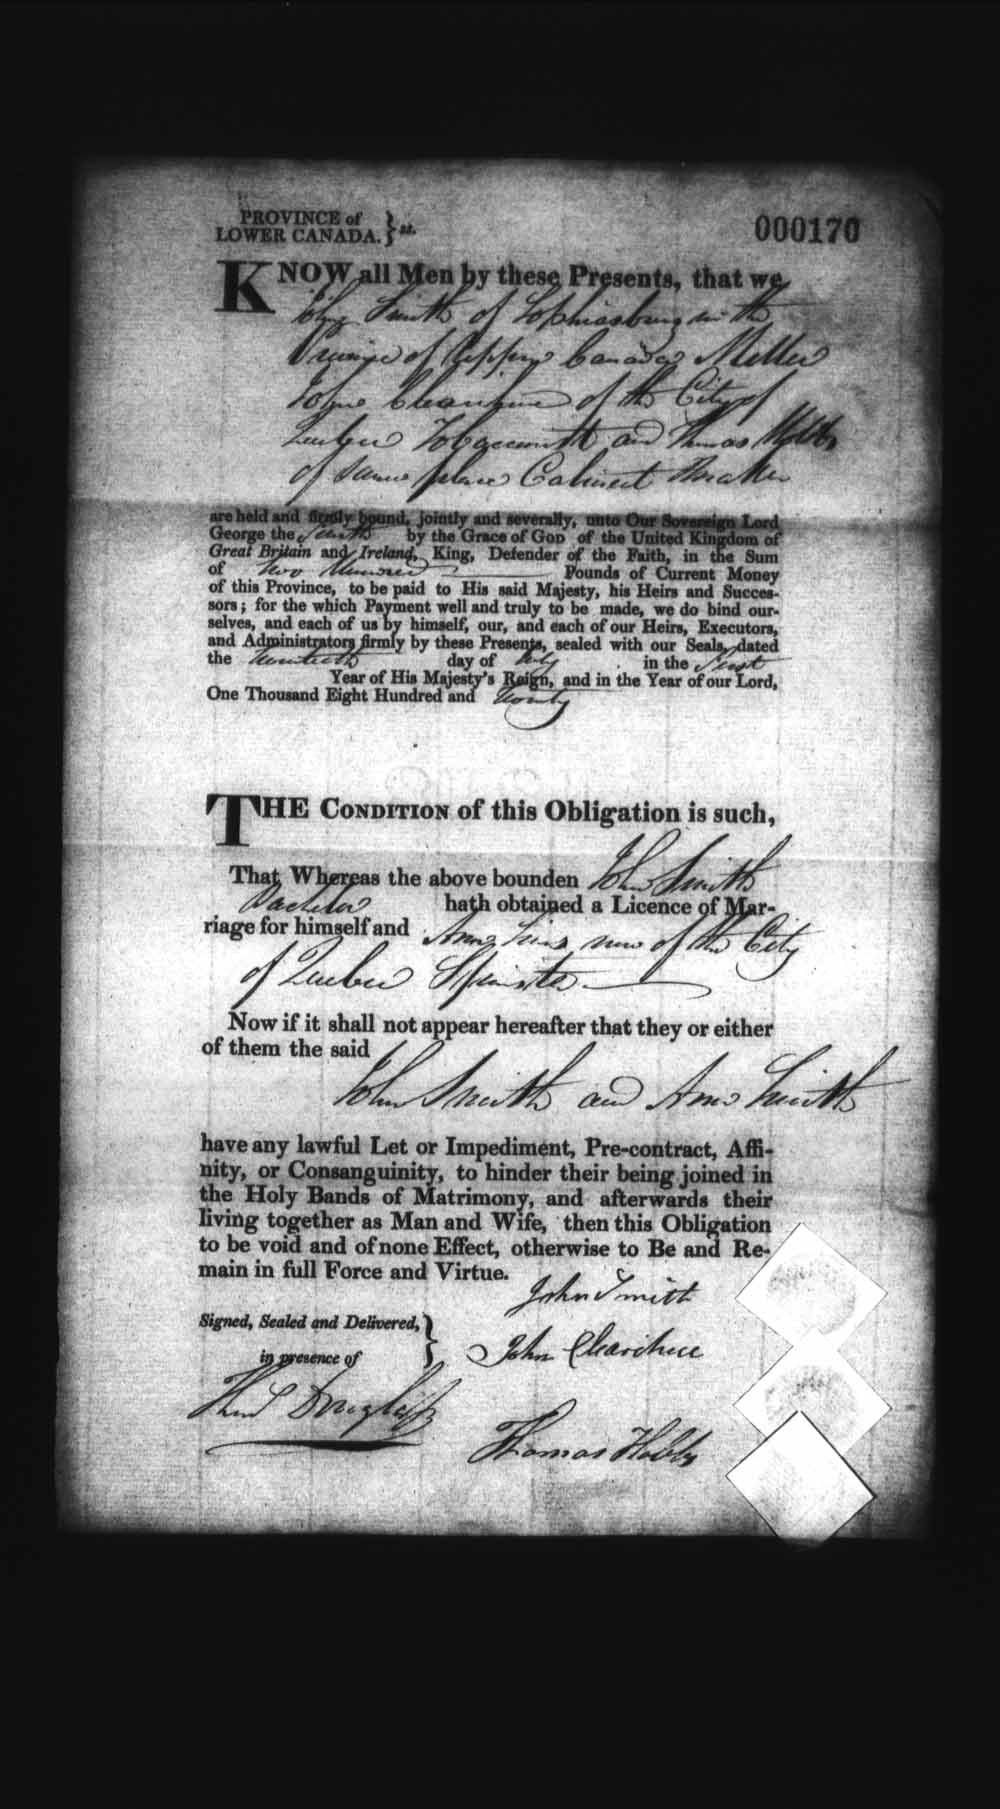 PROVINCE of
LOWER CANADA. } ss.
000170
KNOW all Men by these Presents, that we
John Smith of Sophiasburg in the
Province of Upper Canada Miller
John Clearihue of the City of
Quebec Tobacconist and Thomas Hobbs
of same place Cabinet Maker
are held and firmly bound, jointly and severally, unto Our Sovereign Lord
George the Fourth by the Grace of GOD of the United Kingdom of
Great Britain and Ireland, King, Defender of the Faith, in the Sum
of Two Hundred Pounds of Current Money
of this Province, to be paid to His said Majesty, his Heirs and Succes-
sors; for the which Payment well and truly to be made, we do bind our-
selves, and each of us by himself, our, and each of our Heirs, Executors,
and Administrators firmly by these Presents, sealed with our Seals, dated
the day of July in the First
Year of His Majesty's Reign, and in the Year of our Lord,
One Thousand Eight Hundred and Twenty
THE CONDITION of this Obligation is such,
That Whereas the above bounden John Smith
Bachelor hath obtained a Licence of Mar-
riage for himself and Ann now of the City
of Quebec Spinster
Now if it shall not appear hereafter that they or either
of them the said
John Smith and Ann Smith
have any lawful Let or Impediment, Pre-contract, Affi-
nity, or Consanguinity, to hinder their being joined in
the Holy Bands of Matrimony, and afterwards their
living together as Man and Wife, then this Obligation
to be void and of none Effect, otherwise to Be and Re-
main in full Force and Virtue.
John Smith
Signed, Sealed and Delivered, }
in presence of
John Clearihue
Douglass
Thomas Hobbs